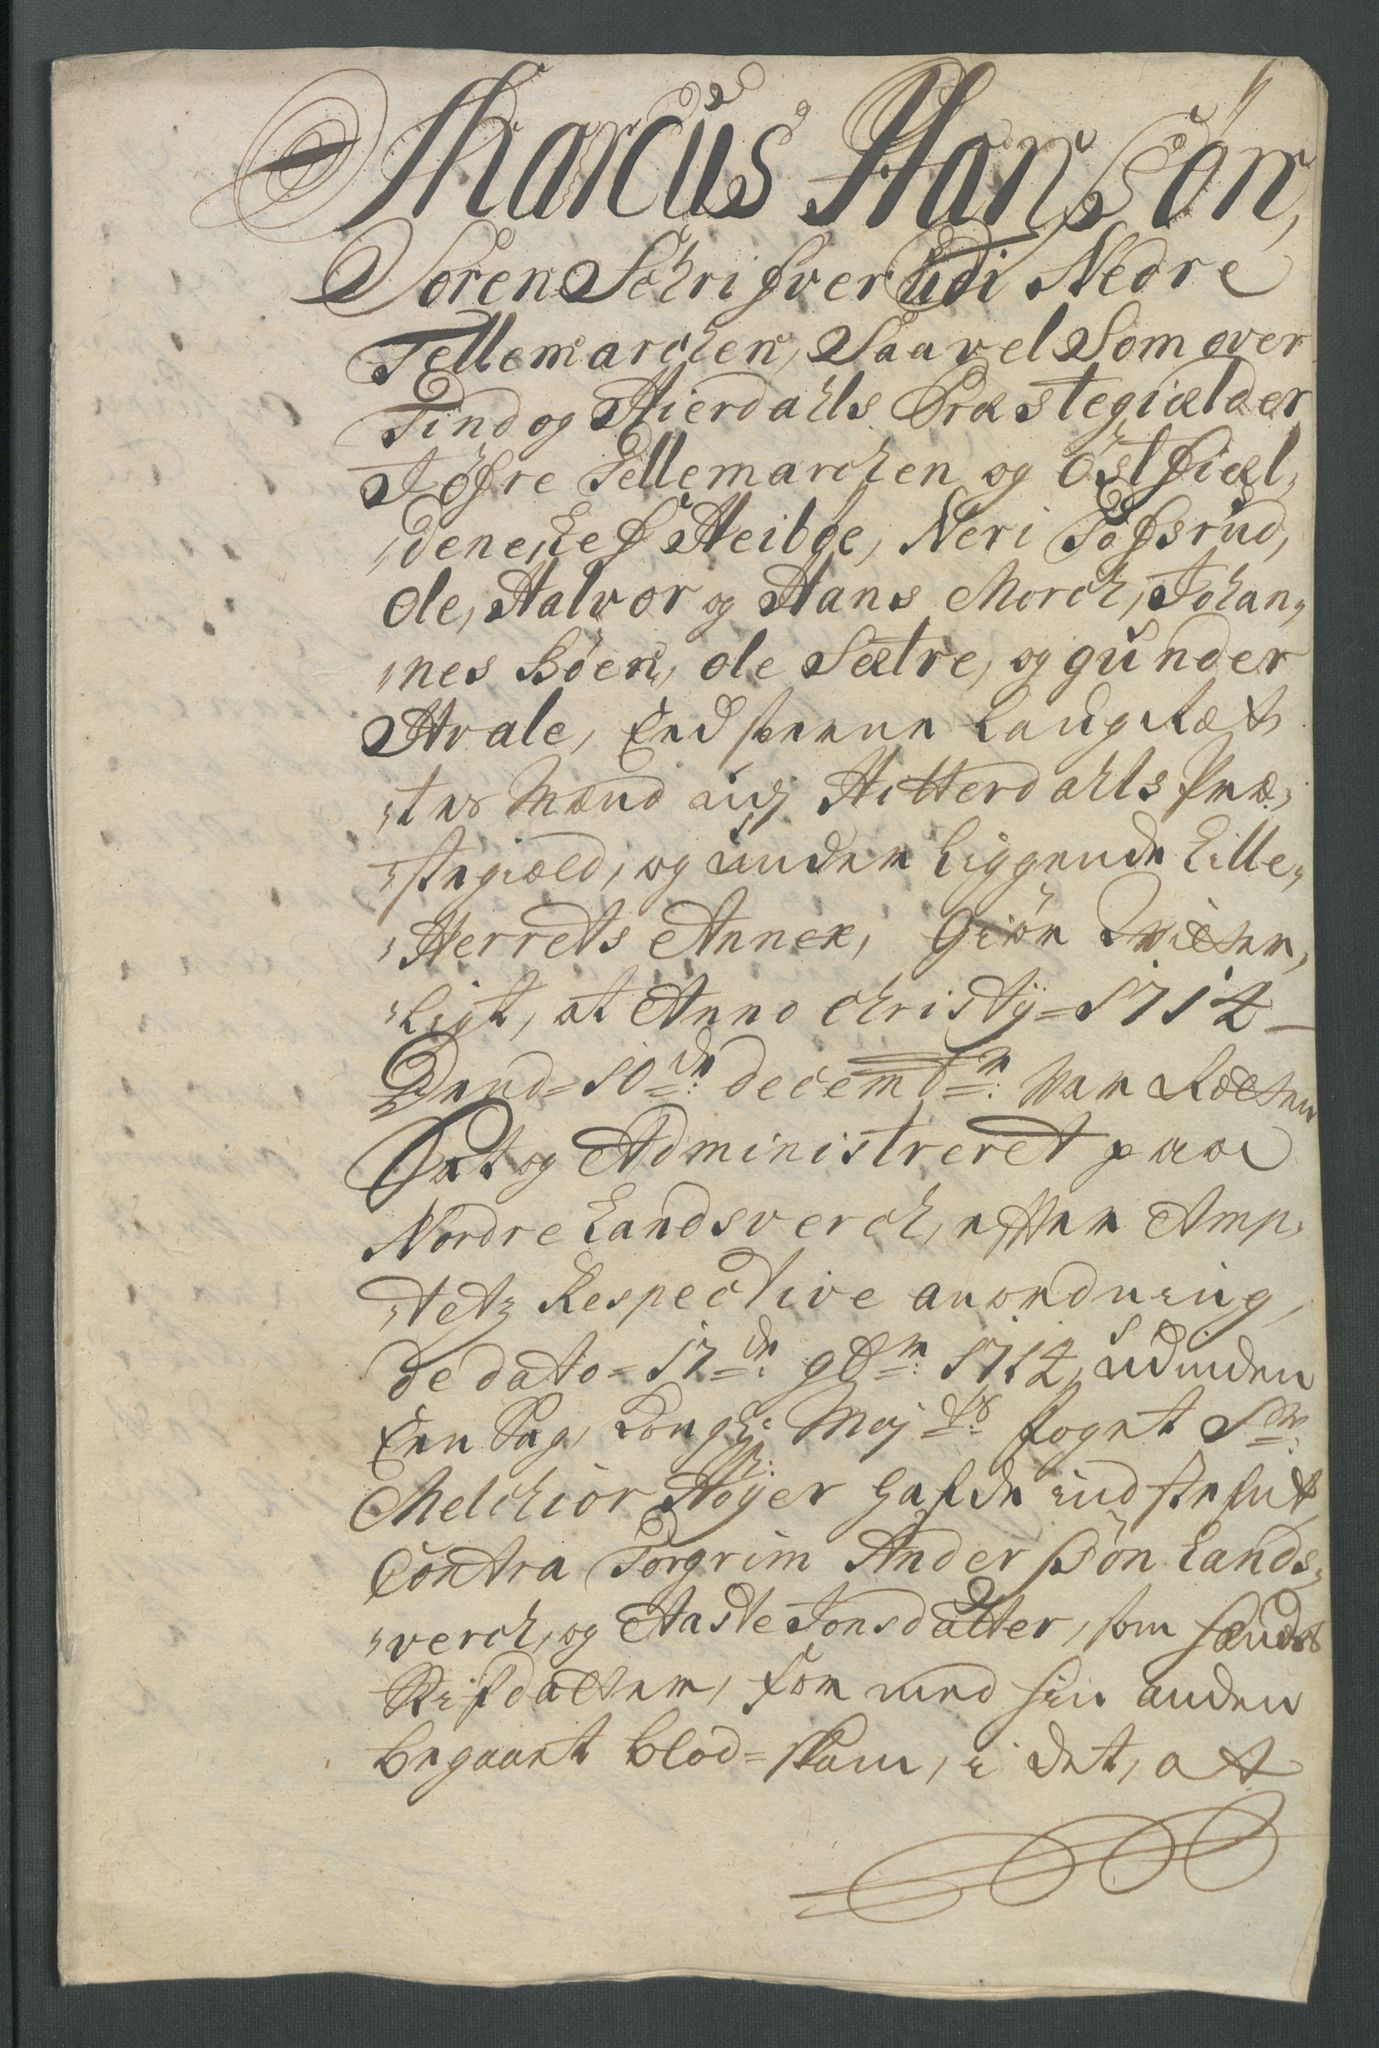 Marcus Hansøn,
Soren Schrifver udi Nedre
Tellemarchen, Saavel Som over
Tind og Hierdahls Præstegiælder
I Øfre Tellemarchen og Østfiæl,
,dene, Lef Heibøe, Neri Tøfsrud,
Ole, Halvor og Hans Morch, Johan,,
,,nes Bøen, Ole Sætre, og gunder
Hvale, Eedsvorne LaugRæt
,,tes Mænd udj Hitterdahls Præ,,
,,stegiæld, og underliggende Lille,,
,,Herrets Annex, Giör Witter,,
,,ligt, at Anno Christÿ = 1714 –
Dend = 10de: decembr: War Rætten
Sat og Administreret paa
Nordre Landsverch, efter Amp,
,,tetz Respective anordning,
De dato = 17de: 9br: 1714, udinden
Een Sag, Kongl: Mayts: foget Sr:
Melchior Höÿer hafde indstefnt,
Contra Torgrim Anderssön Lands,,
,,verch, og Aaste Jonsdatter, som hands
Stifdatter, for med hin anden
begaaet blod=skam, i det, at